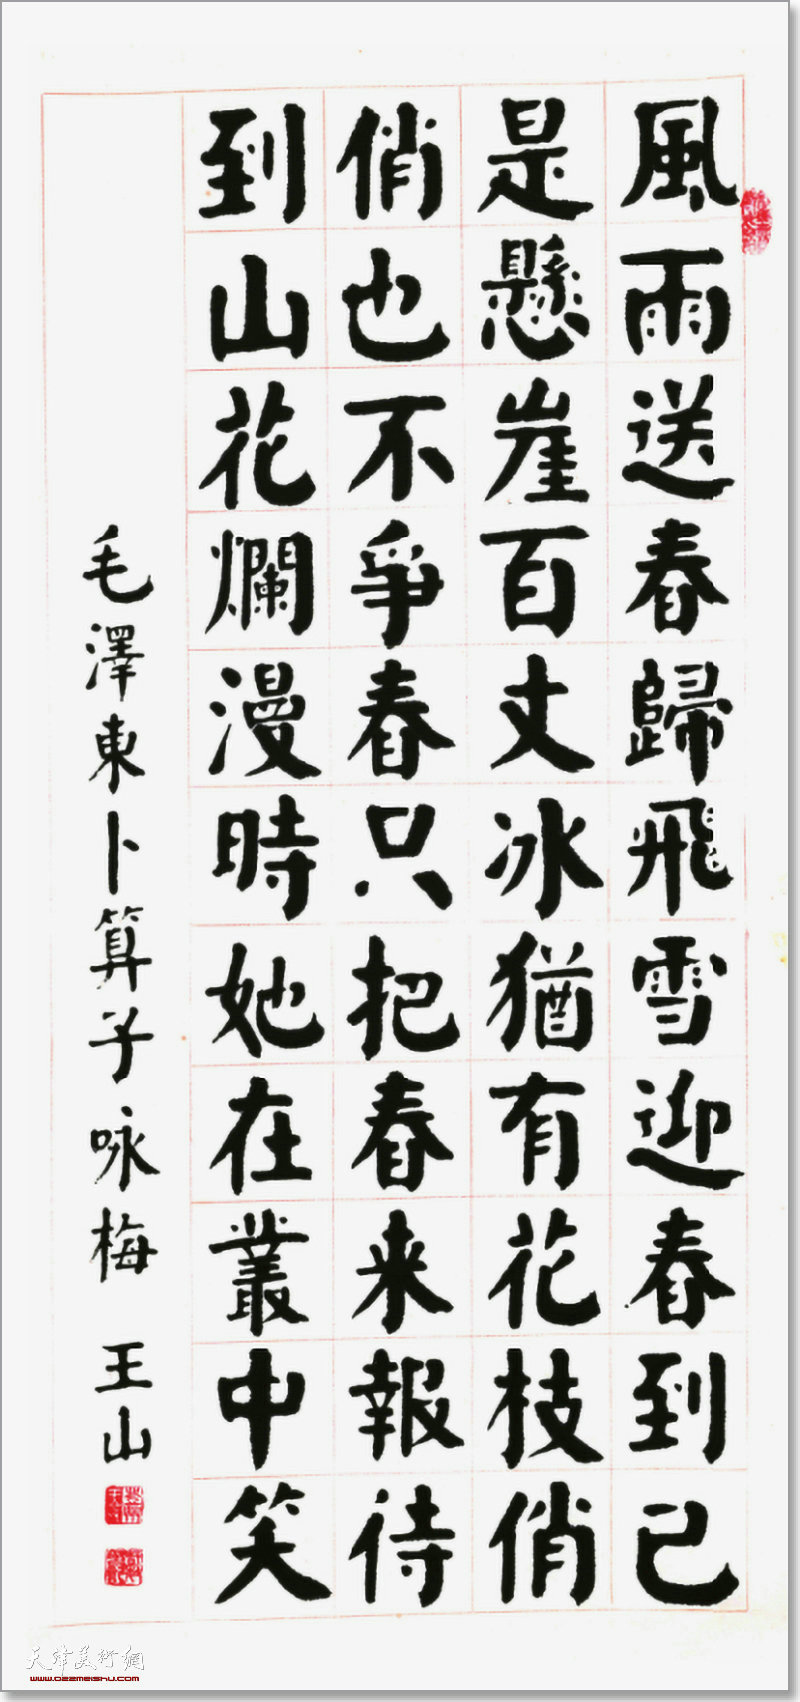 風雨送春歸飛雪迎春到已
是懸崖百丈冰猶有花枝俏
俏也不爭春只把春来報待
到山花爛漫時她在叢中笑
毛澤東卜算子咏梅 王山
天津美術網
www.022meishu.com